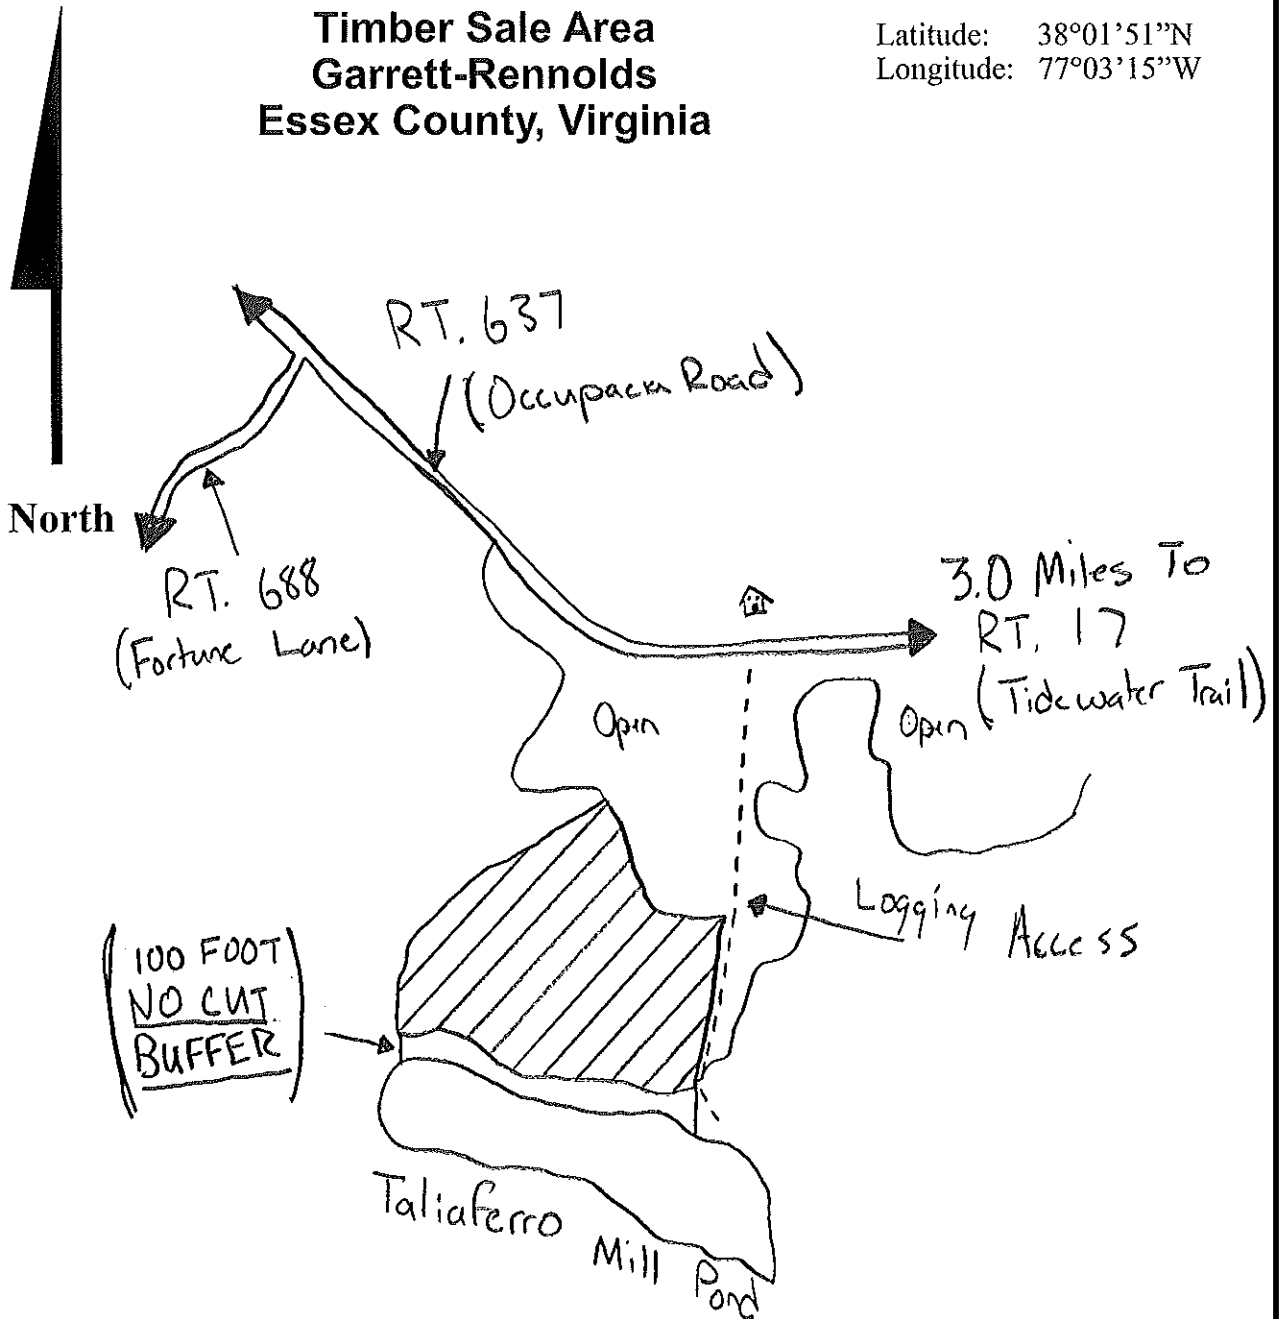 Timber Sale Area
Garrett-Rennolds
Essex County, Virginia
Latitude: 38°01’51”N
Longitude: 77°03’15”W
RT. 637
(Occupacia Road)
North
RT. 688
(Fortune Lane)
3.0 Miles To
RT. 17
(Tidewater Trail)
Open
Open
Logging Access
(100 FOOT
NO CUT
BUFFER)
Taliaferro Mill Pond